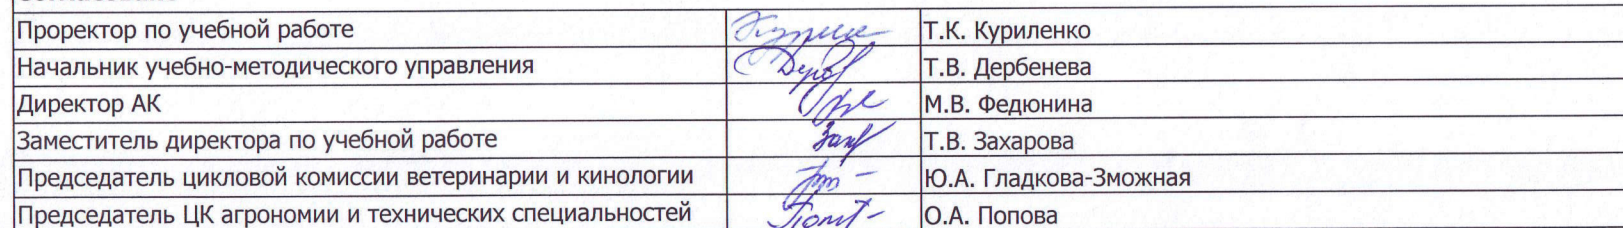 Проректор по учебной работе Т.К. Куриленко
Начальник учебно-методического управления Т.В. Дербенева
Директор АК М.В. Федюнина
Заместитель директора по учебной работе Т.В. Захарова
Председатель цикловой комиссии ветеринарии и кинологии Ю.А. Гладкова-Зможная
Председатель ЦК агрономии и технических специальностей О.А. Попова